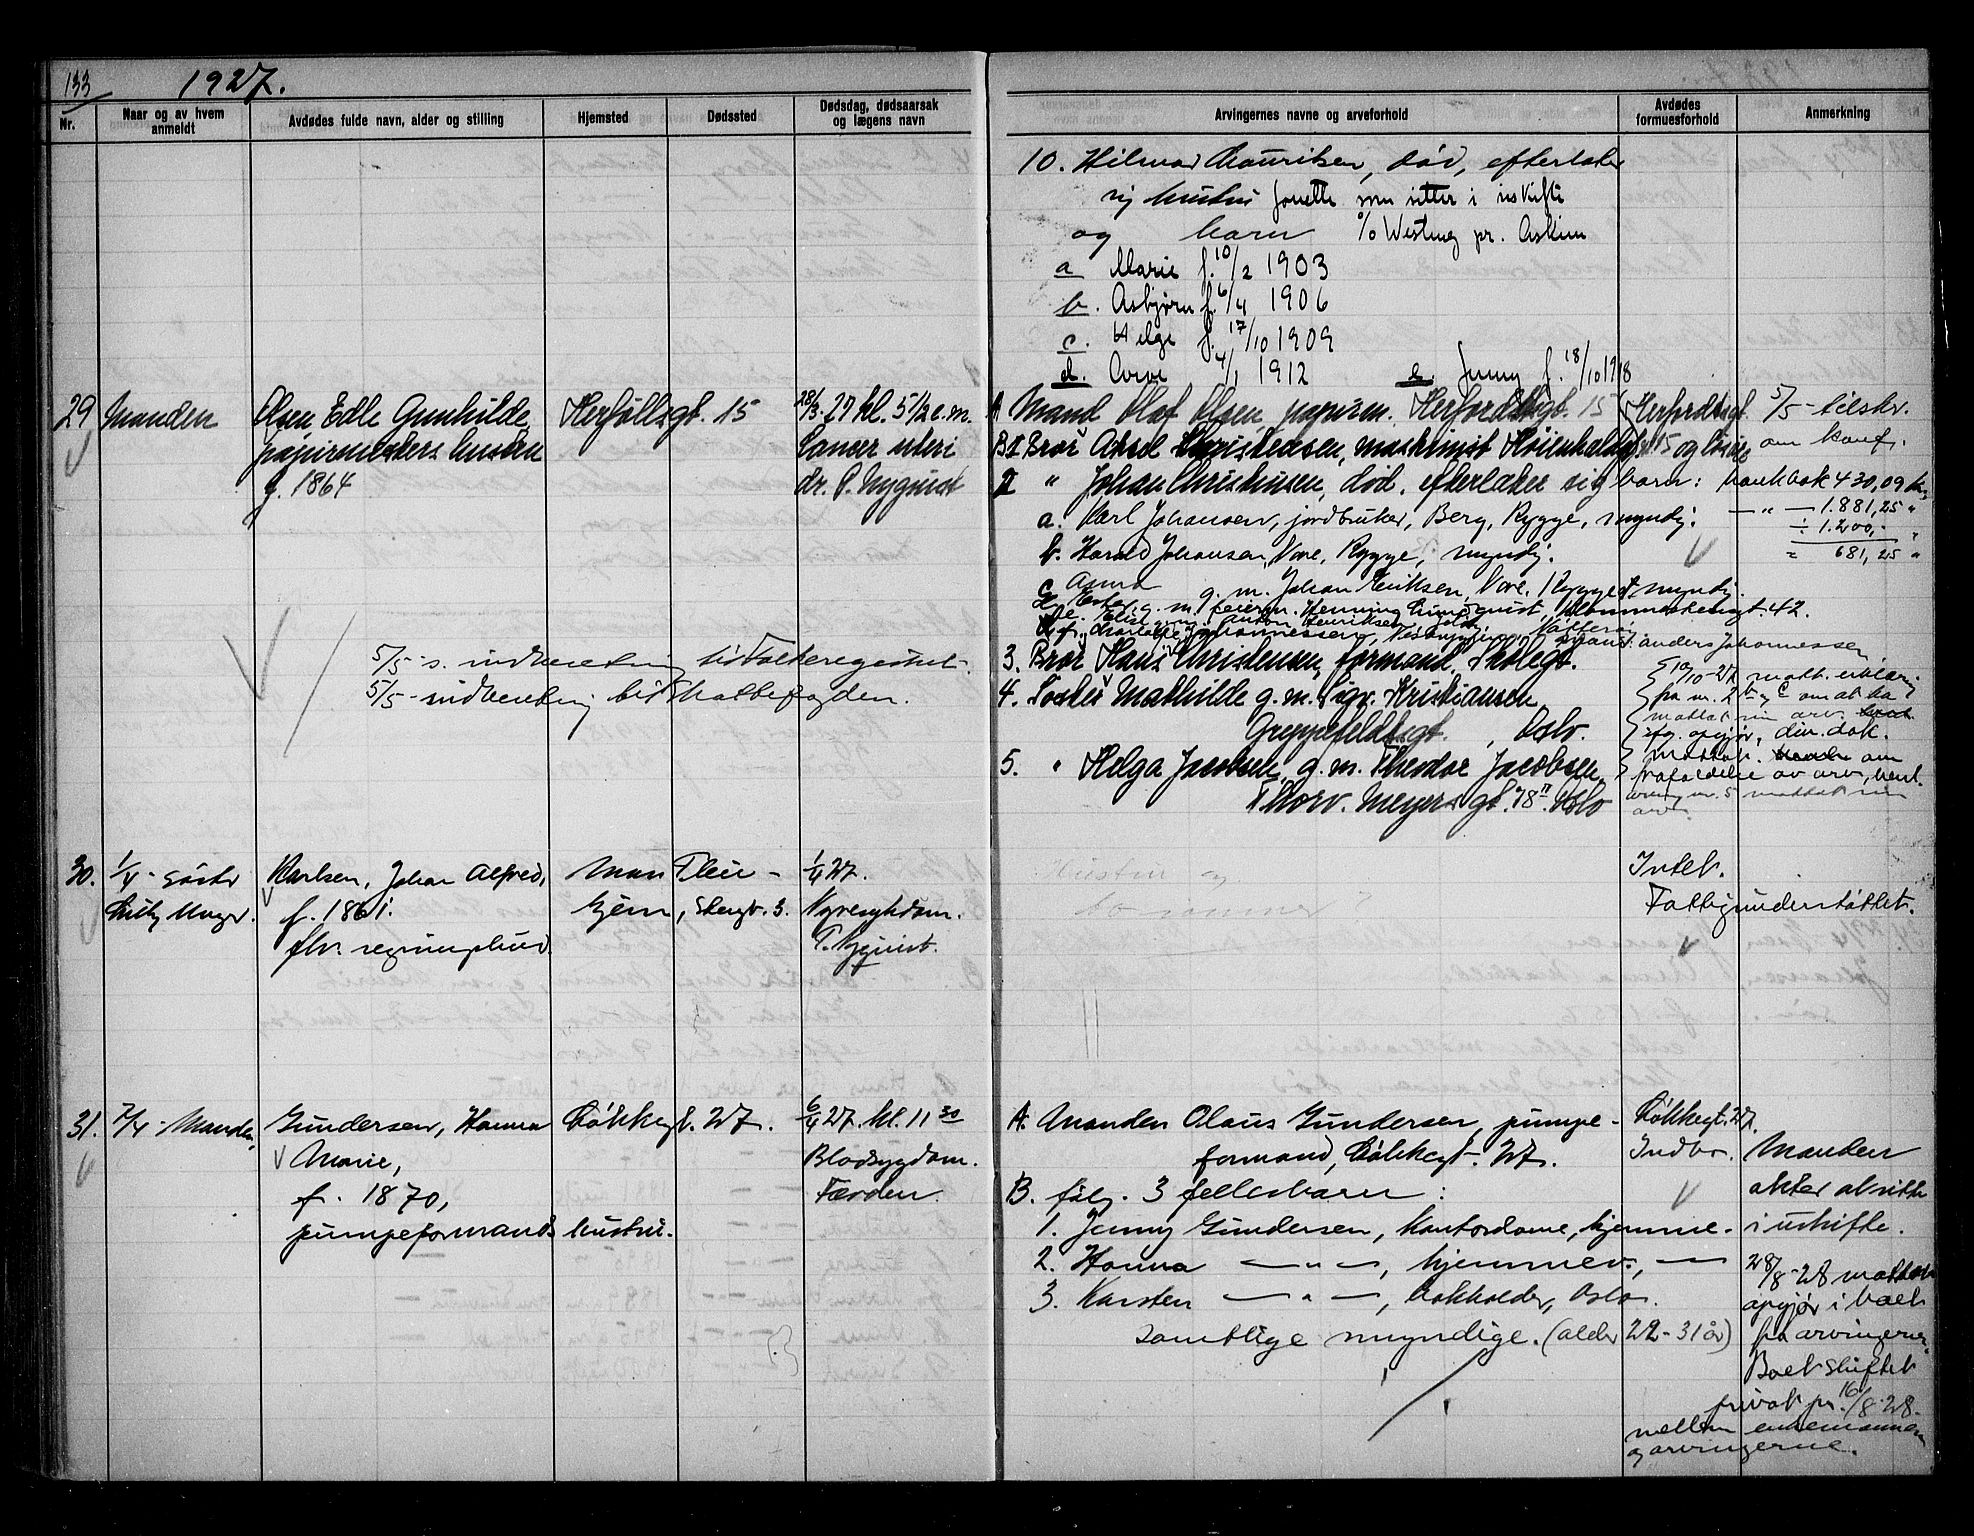 133
1927.
Nr.
Naar og av hvem anmeldt
Avdødes fulde navn, alder og stilling
Hjemsted
Dødssted
Dødsdag, dødsaarsak og lægens navn
Arvingernes navne og arveforhold
Avdødes formuesforhold
Anmerkning
10. Hilmar Lauritsen, død, efterlater
sig hustru Jonette som sitter i uskifte
og barn % Westeng pr. Askim
a Marie f. 10/2 1903
b. Asbjørn f. 6/4 1906
c. Helge f. 17/10 1909
d. Arve 4/1 1912 e. Jenny f. 18/10 1918
29 Manden
Olsen Edle Gunhilde,
papirmesters hustru
f. 1864
Herføllsgt. 15
28/3-27 kl. 5 1/2 e.m.
Cancer uteri
dr. P. Nyquist
A Mand Olaf Olsen papirm. Herfordsgt. 15
B I Bror Aksel Christensen, maskinist
II " Johan Christensen, død, efterlater sig barn:
a. Karl Johansen, jordbruker, Berg, Rygge, myndig.
b. Harald Johansen, Vore, Rygge, myndig.
c Asma g. m. Johan Eriksen, Vore, Rygge, myndig.
d. Ester g. m. feierm. Henning Lundquist, 42.
3. Bror Hans Christensen, formand,
4. Søster Mathilde g. m. Sigv. Kristiansen
, Oslo.
5. " Helga Jacobsen, g. m. Theodor Jacobsen,
Thorv. Meyers gt. 78 II. Oslo
Herfordsgt.
15 og løsøre
5/5 - tilskr.
om konf.
bankbok 430,09 kr.
— " — 1.881,25 "
÷ 1.200,- "
= 681,25 "
Anders Johannessen
10/10-27 matt. erklæring
fra nr. 2 b og c om at ha
mottat sin arv.
5/5 - s. indberetning til Folkeregistret.
5/5 - indberetning til Skattefogden.
30. 1/4 - søster
Karlsen, Johan Alfred,
f. 1861.
Man Pleie-
hjem, Skrgt. 3.
1/4 27.
Nyresykdom.
P. Nyquist.
Hustru og
Intet.
Fattigunderstøttet.
31. 7/4 - Manden,
Gundersen, Hanna
Marie,
f. 1870,
pumpeformands hustru.
Løkkegt. 27.
6/4 27. kl. 11 30
Blodsygdom.
Færden.
A. Manden Olaus Gundersen, pumpe-
formand, Løkkegt. 27.
B. følg. 3 fellesbarn:
1. Jenny Gundersen, kontordame, hjemme.
2. Hanna — " —, hjemmev., —
3. Karsten — " —, bokholder, Oslo.
samtlige myndige. (alder 22 - 31 år)
Løkkegt. 27.
Indbo.
Manden
akter at sitte
i uskifte.
28/8-28 mottatt
opgjør i boet
fra arvingerne.
Boet skiftet
privat pr. 16/8-28.
mellem enkemannen
og arvingerne.